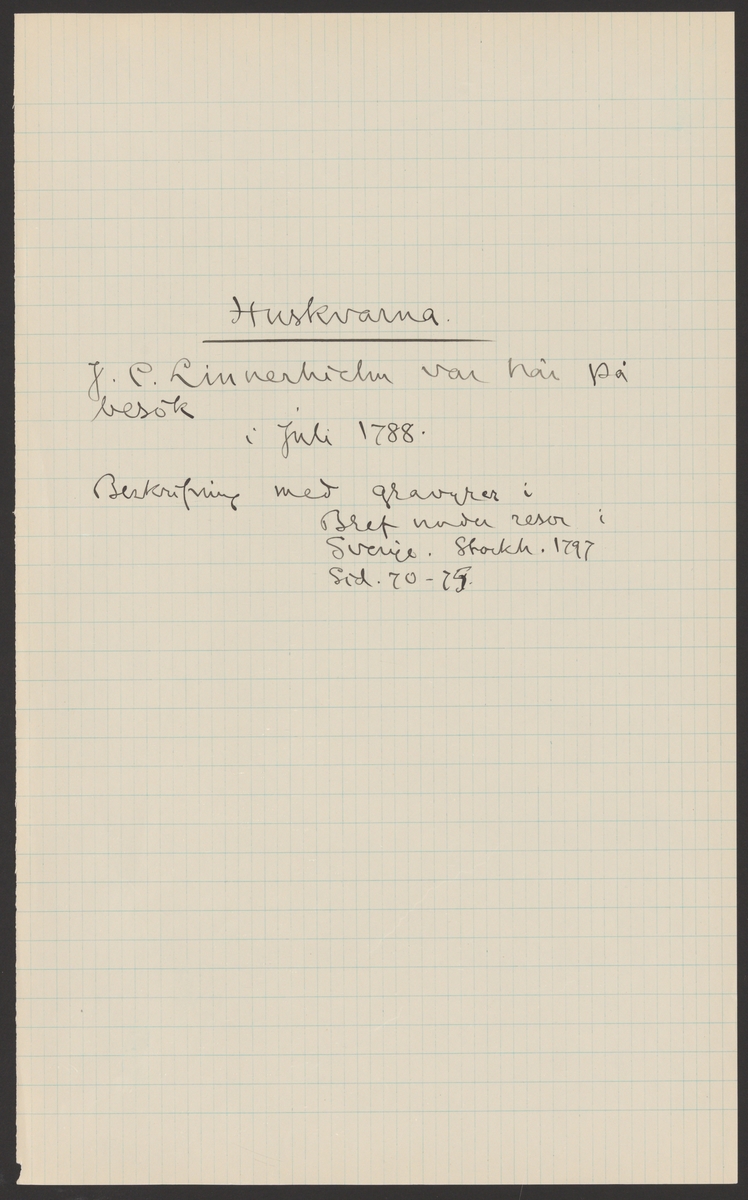 Huskvarna.
J. C. Linnerhielm var här på
besök
i Juli 1788.
Beskrifning med gravyrer i
Bref under resor i
Sverige. Stockh. 1797
Sid. 70 -